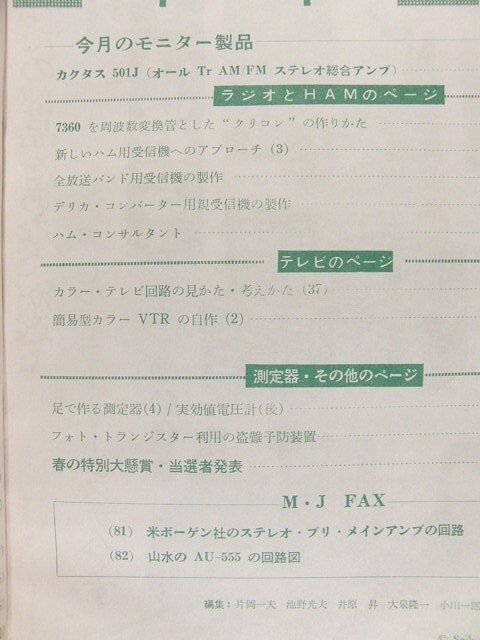 今月のモニター製品
カクタス 501J (オール Tr AM/FM ステレオ総合アンプ)
ラジオとHAMのページ
7360 を周波数変換管とした“クリコン”の作りかた
新しいハム用受信機へのアプローチ (3)
全放送バンド用受信機の製作
デリカ・コンバーター用親受信機の製作
ハム・コンサルタント
テレビのページ
カラー・テレビ回路の見かた・考えかた (37)
簡易型カラー VTR の自作 (2)
測定器・その他のページ
足で作る測定器(4) / 実効値電圧計(後)
フォト・トランジスター利用の盗難予防装置
春の特別大懸賞・当選者発表
M・J FAX
(81) 米ボーゲン社のステレオ・プリ・メインアンプの回路
(82) 山水の AU-555 の回路図
編集：片岡一夫 池野光夫 井原 昇 大泉隆一 小川一郎